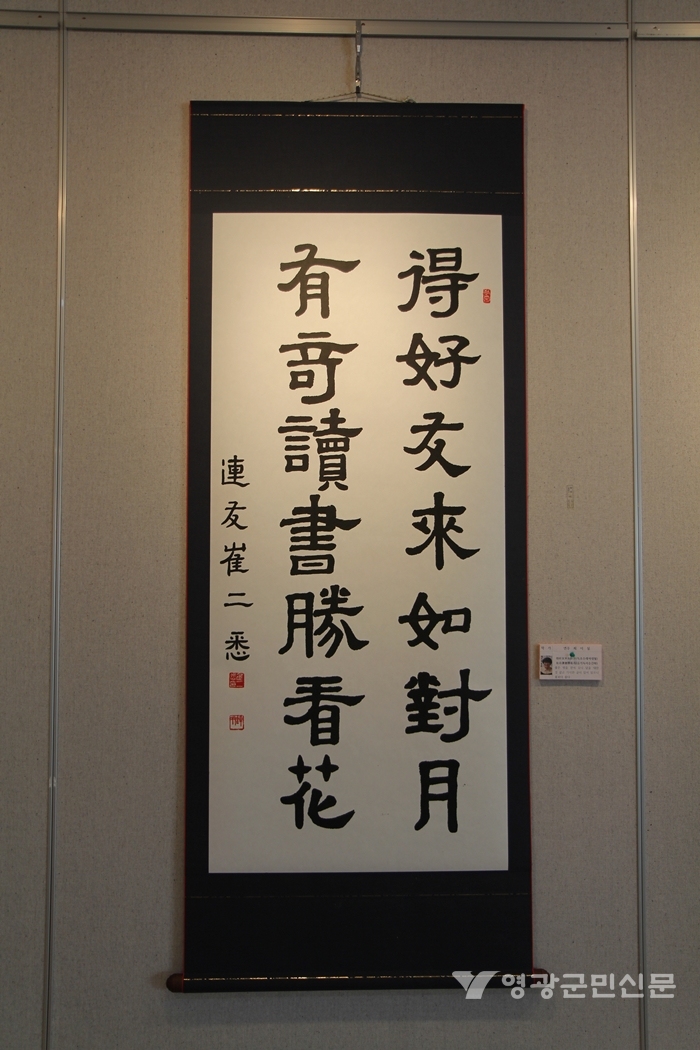 得好友來如對月
有奇讀書勝看花
連友崔二悉
영광군민신문